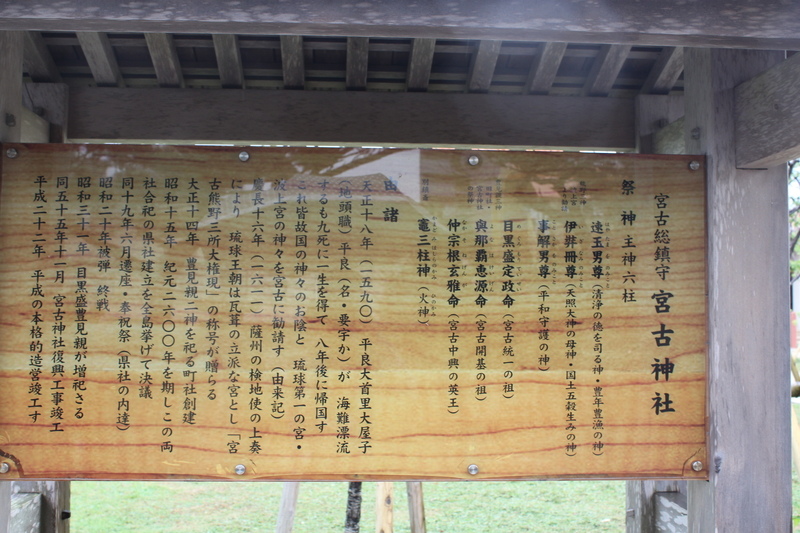 宮古総鎮守 宮古神社
祭神 主神六柱
速玉男尊（清浄の徳を司る神・豊年豊漁の神）
伊弉冊尊（天照大神の母神・国土五穀生みの神）
事解男尊（平和守護の神）
目黒盛定政命（宮古統一の祖）
與那覇恵源命（宮古開基の祖）
仲宗根玄雅命（宮古中興の英王）
竈三柱神（火神）
由諸
天正十八年（一五九〇）平良大首里大屋子
（地頭職）平良（名・要字か）が 海難漂流
するも九死に一生を得て 八年後に帰国す
これ皆故国の神々のお陰と 琉球第一の宮・
波上宮の神々を宮古に勧請す（由来記）
慶長十六年（一六一一）薩州の検地使の上奏
により 琉球王朝は瓦葺の立派な宮とし「宮
古熊野三所大権現」の称号が贈らる
大正十四年 豊見親二神を祀る町社創建
昭和十五年 紀元二六〇〇年を期しこの両
社合祀の県社建立を全島挙げて決議
同十九年六月遷座・奉祝祭（県社の内達）
昭和二十年被弾 終戦
昭和三十一年 目黒盛豊見親が増祀さる
同五十五年十一月 宮古神社復興工事竣工
平成二十二年 平成の本格的造営竣工す